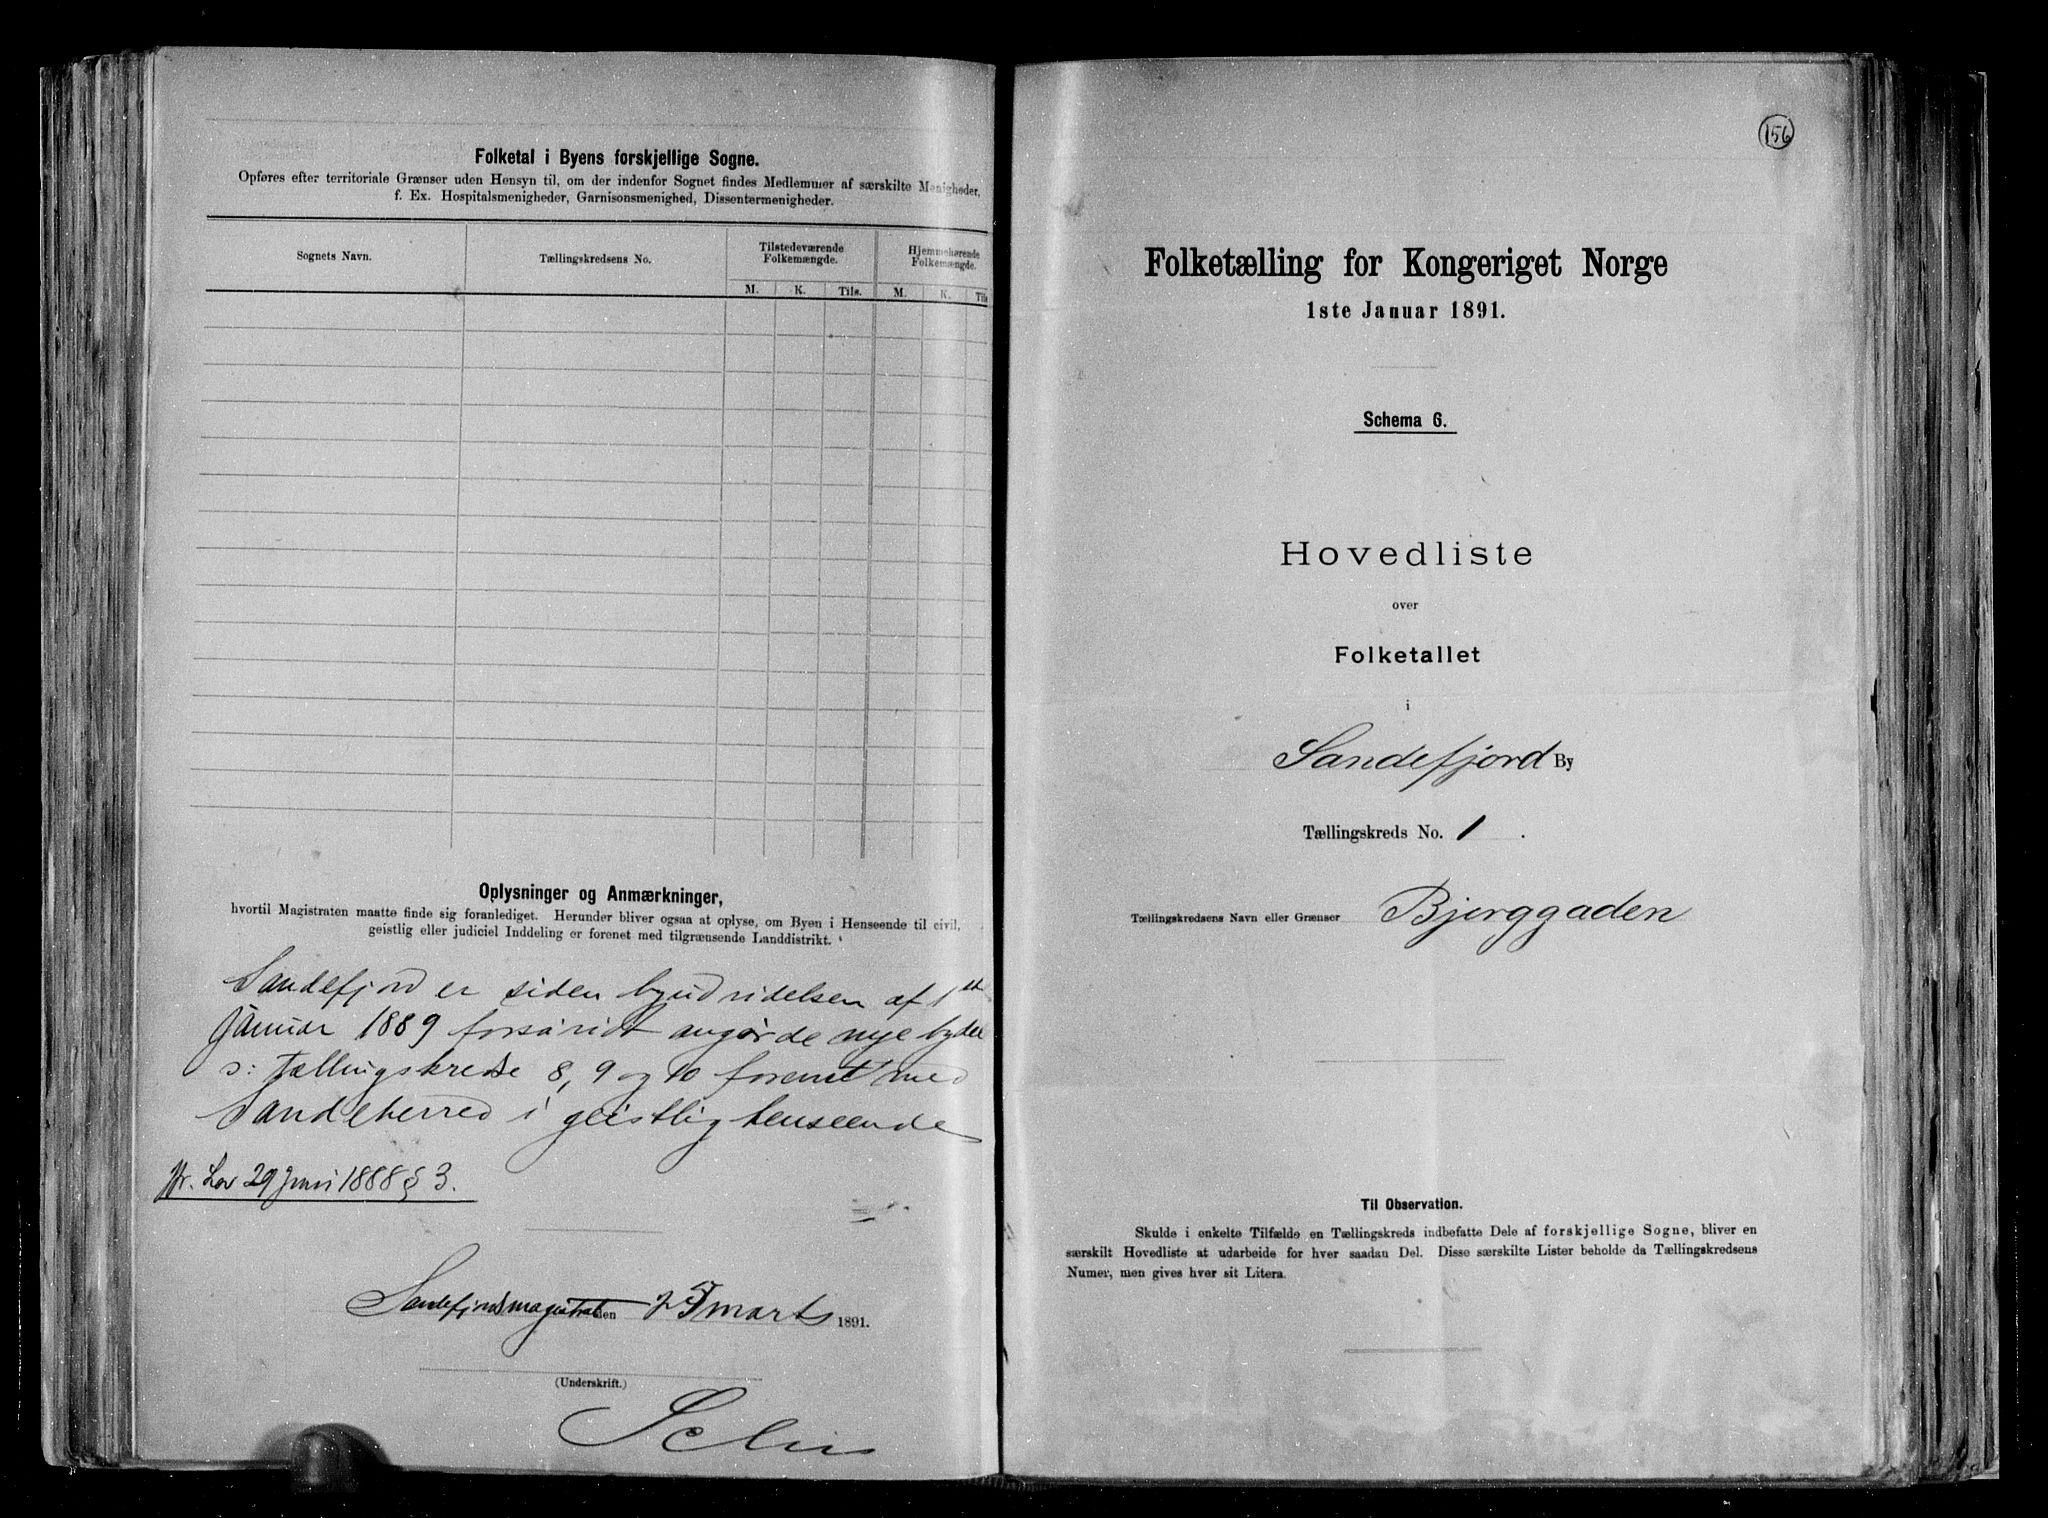 Folketal i Byens forskjellige Sogne.
Opføres efter territoriale Grænser uden Hensyn til, om der indenfor Sognet findes Medlemmer af særskilte Menigheder,
f. Ex. Hospitalsmenigheder, Garnisonsmenighed, Dissentermenigheder.
Sognets Navn.
Tællingskredsens No.
Tilstedeværende
Folkemængde.
Hjemmehørende
Folkemængde.
M. K. Tils. M. K. Tils
Oplysninger og Anmærkninger,
hvortil Magistraten maatte finde sig foranlediget. Herunder bliver ogsaa at oplyse, om Byen i Henseende til civil,
geistlig eller judiciel Inddeling er forenet med tilgrænsende Landdistrikt.
Sandefjord er siden byudvidelsen af 1st
Januar 1889 forsåvidt angår de nye bydele
ɔ: Tællingskredse 8, 9 og 10 forenet med
Sandeherred i geistlig henseende
jfr. Lov 29 Juni 1888 § 3.
Sandefjords magistrat den 25 marts 1891.
(Underskrift.)
156
Folketælling for Kongeriget Norge
1ste Januar 1891.
Schema 6.
Hovedliste
over
Folketallet
i
Sandefjord By
Tællingskreds No. 1.
Tællingskredsens Navn eller Grænser Bjerggaden
Til Observation.
Skulde i enkelte Tilfælde en Tællingskreds indbefatte Dele af forskjellige Sogne, bliver en
særskilt Hovedliste at udarbeide for hver saadan Del. Disse særskilte Lister beholde da Tællingskredsens
Numer, men gives hver sit Litera.